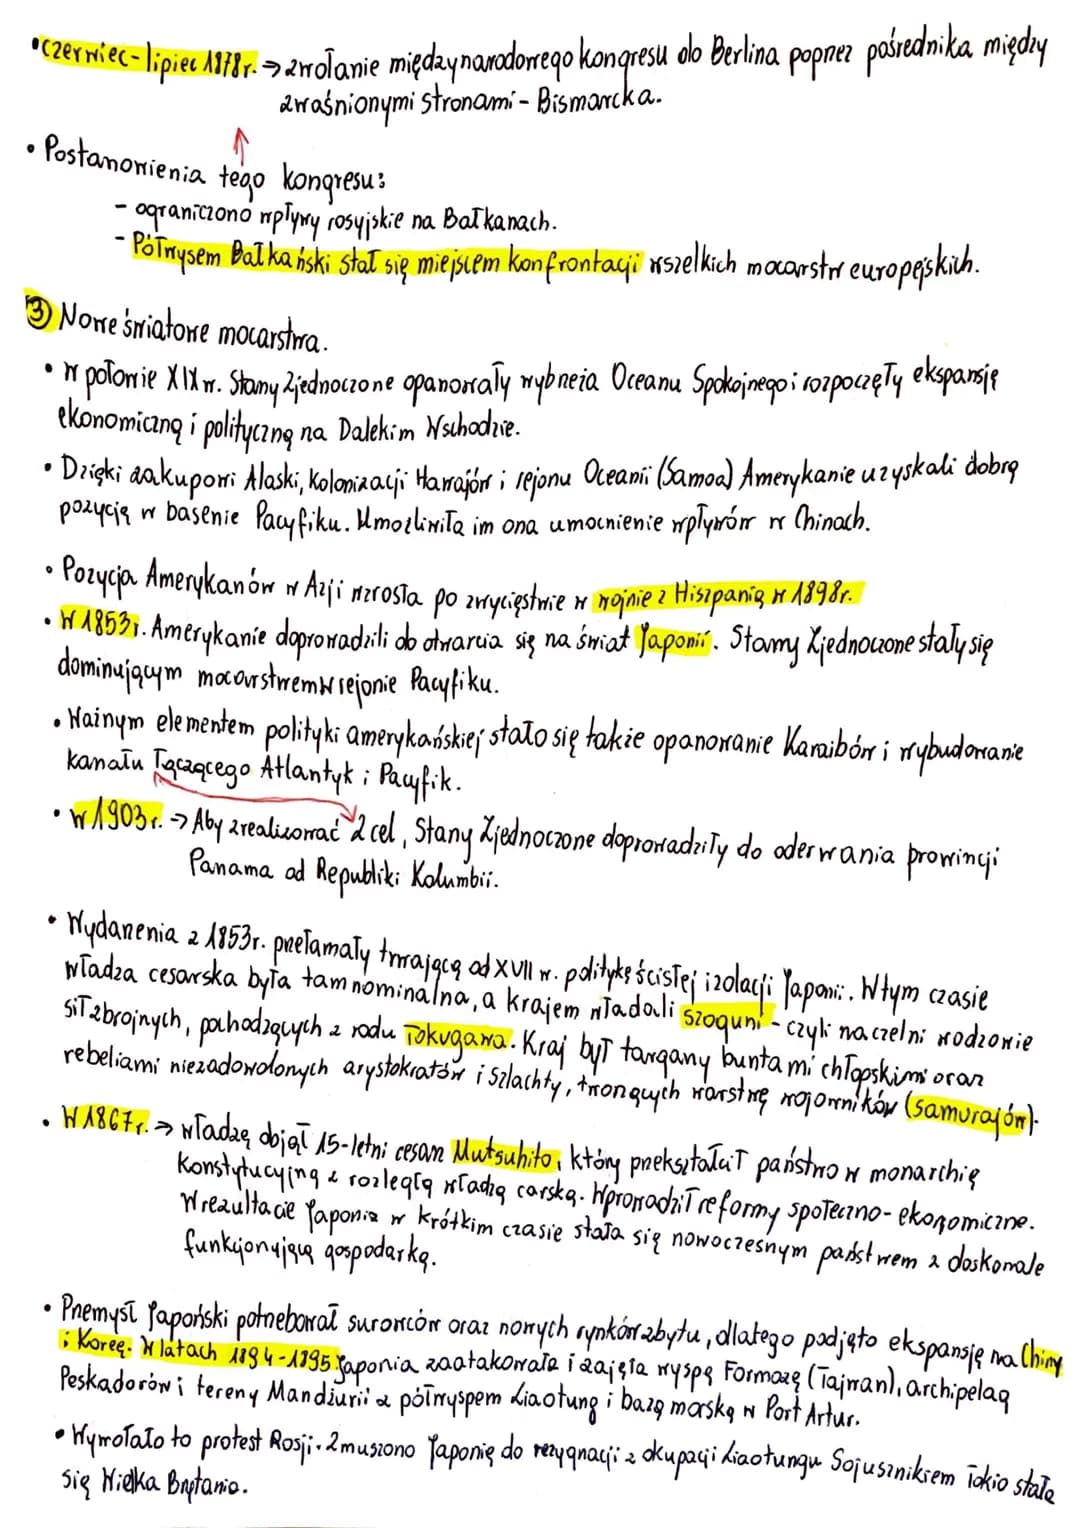 • czerwiec-lipiec 1878r. → zwołanie międzynarodowego kongresu do Berlina poprzez pośrednika między
zwaśnionymi stronami - Bismarcka.
• Postanowienia tego kongresu:
- ograniczono wpływy rosyjskie na Bałkanach.
- Półwysem Bałkański stał się miejscem konfrontacji wszelkich mocarstw europejskich.
③ Nowe światowe mocarstwa.
• W połowie XIX w. Stany Zjednoczone opanowały wybrzeża Oceanu Spokojnego i rozpoczęły ekspansję
ekonomiczną i polityczną na Dalekim Wschodzie.
• Dzięki zakupowi Alaski, kolonizacji Hawajów i rejonu Oceanii (Samoa) Amerykanie uzyskali dobrą
pozycję w basenie Pacyfiku. Umożliwiła im ona umocnienie wpływów w Chinach.
• Pozycja Amerykanów w Azji wzrosła po zwycięstwie w wojnie z Hiszpanią w 1898r.
• W 1853r. Amerykanie doprowadzili do otwarcia się na świat Japonii. Stany Zjednoczone stały się
dominującym mocarstwem w rejonie Pacyfiku.
• Ważnym elementem polityki amerykańskiej stało się także opanowanie Karaibów i wybudowanie
kanału łączącego Atlantyk i Pacyfik.
• W 1903r. → Aby zrealizować 2 cel, Stany Zjednoczone doprowadziły do oderwania prowincji
Panama od Republiki Kolumbii.
• Wydarzenia z 1853r. przełamały trwającą od XVII w. politykę ścisłej izolacji Japonii. W tym czasie
władza cesarska była tam nominalna, a krajem władali szoguni - czyli naczelni wodzowie
sił zbrojnych, pochodzących z rodu Tokugawa. Kraj był targany buntami chłopskimi oraz
rebeliami niezadowolonych arystokratów i szlachty, tworzących warstwę wojowników (samurajów).
• W 1867r. → władzę objął 15-letni cesarz Mutsuhito, który przekształcił państwo w monarchię
konstytucyjną z rozległą władzą carską. Wprowadził reformy społeczno-ekonomiczne.
W rezultacie Japonia w krótkim czasie stała się nowoczesnym państwem z doskonale
funkcjonującą gospodarką.
• Przemysł Japoński potrzebował surowców oraz nowych rynków zbytu, dlatego podjęto ekspansję na Chiny
i Koreę. W latach 1894-1895 Japonia zaatakowała i zajęła wyspę Formozę (Tajwan), archipelag
Peskadorów i tereny Mandżurii z półwyspem Liaotung i bazą morską w Port Artur.
• Wywołało to protest Rosji. Zmuszono Japonię do rezygnacji z okupacji Liaotungu Sojusznikiem Tokio stała
się Wielka Brytania.